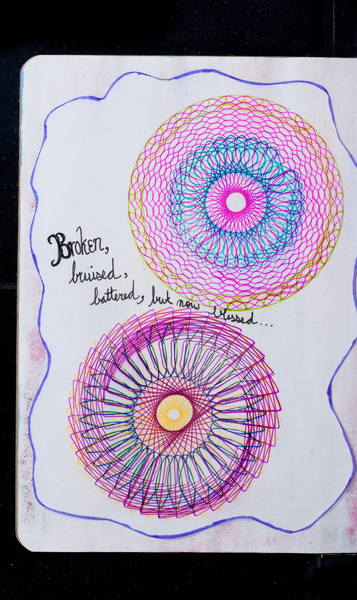 Broken,
bruised,
battered, but now blessed...